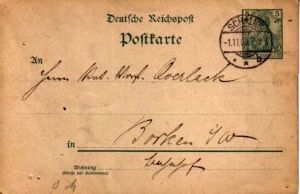 Deutsche Reichspost
Postkarte
An
Herrn
Overlack
in Borken i/W
Bahnhof
Wohnung
(Straße und Hausnummer)